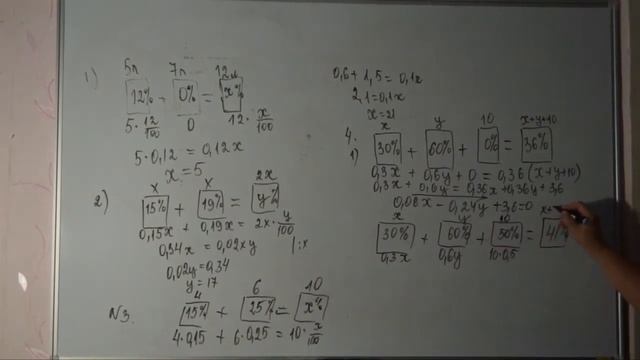 1)
5л 7л 12л
12% + 0% = x%
5·12/100 0 12·x/100
5·0,12 = 0,12x
x = 5
2)
x x 2x
15% + 19% = y%
0,15x + 0,19x = 2x·y/100
0,34x = 0,02xy |:x
0,02y = 0,34
y = 17
N3.
4 6 10
15% + 25% = x%
4·0,15 + 6·0,25 = 10·x/100
0,6 + 1,5 = 0,1x
2,1 = 0,1x
x = 21
4.
x y 10 x+y+10
1) 30% + 60% + 0% = 36%
0,3x + 0,6y + 0 = 0,36(x+y+10)
0,3x + 0,6y = 0,36x + 0,36y + 3,6
0,06x - 0,24y + 3,6 = 0
x y 10 x+
30% + 60% + 50% = 41
0,3x 0,6y 10·0,5